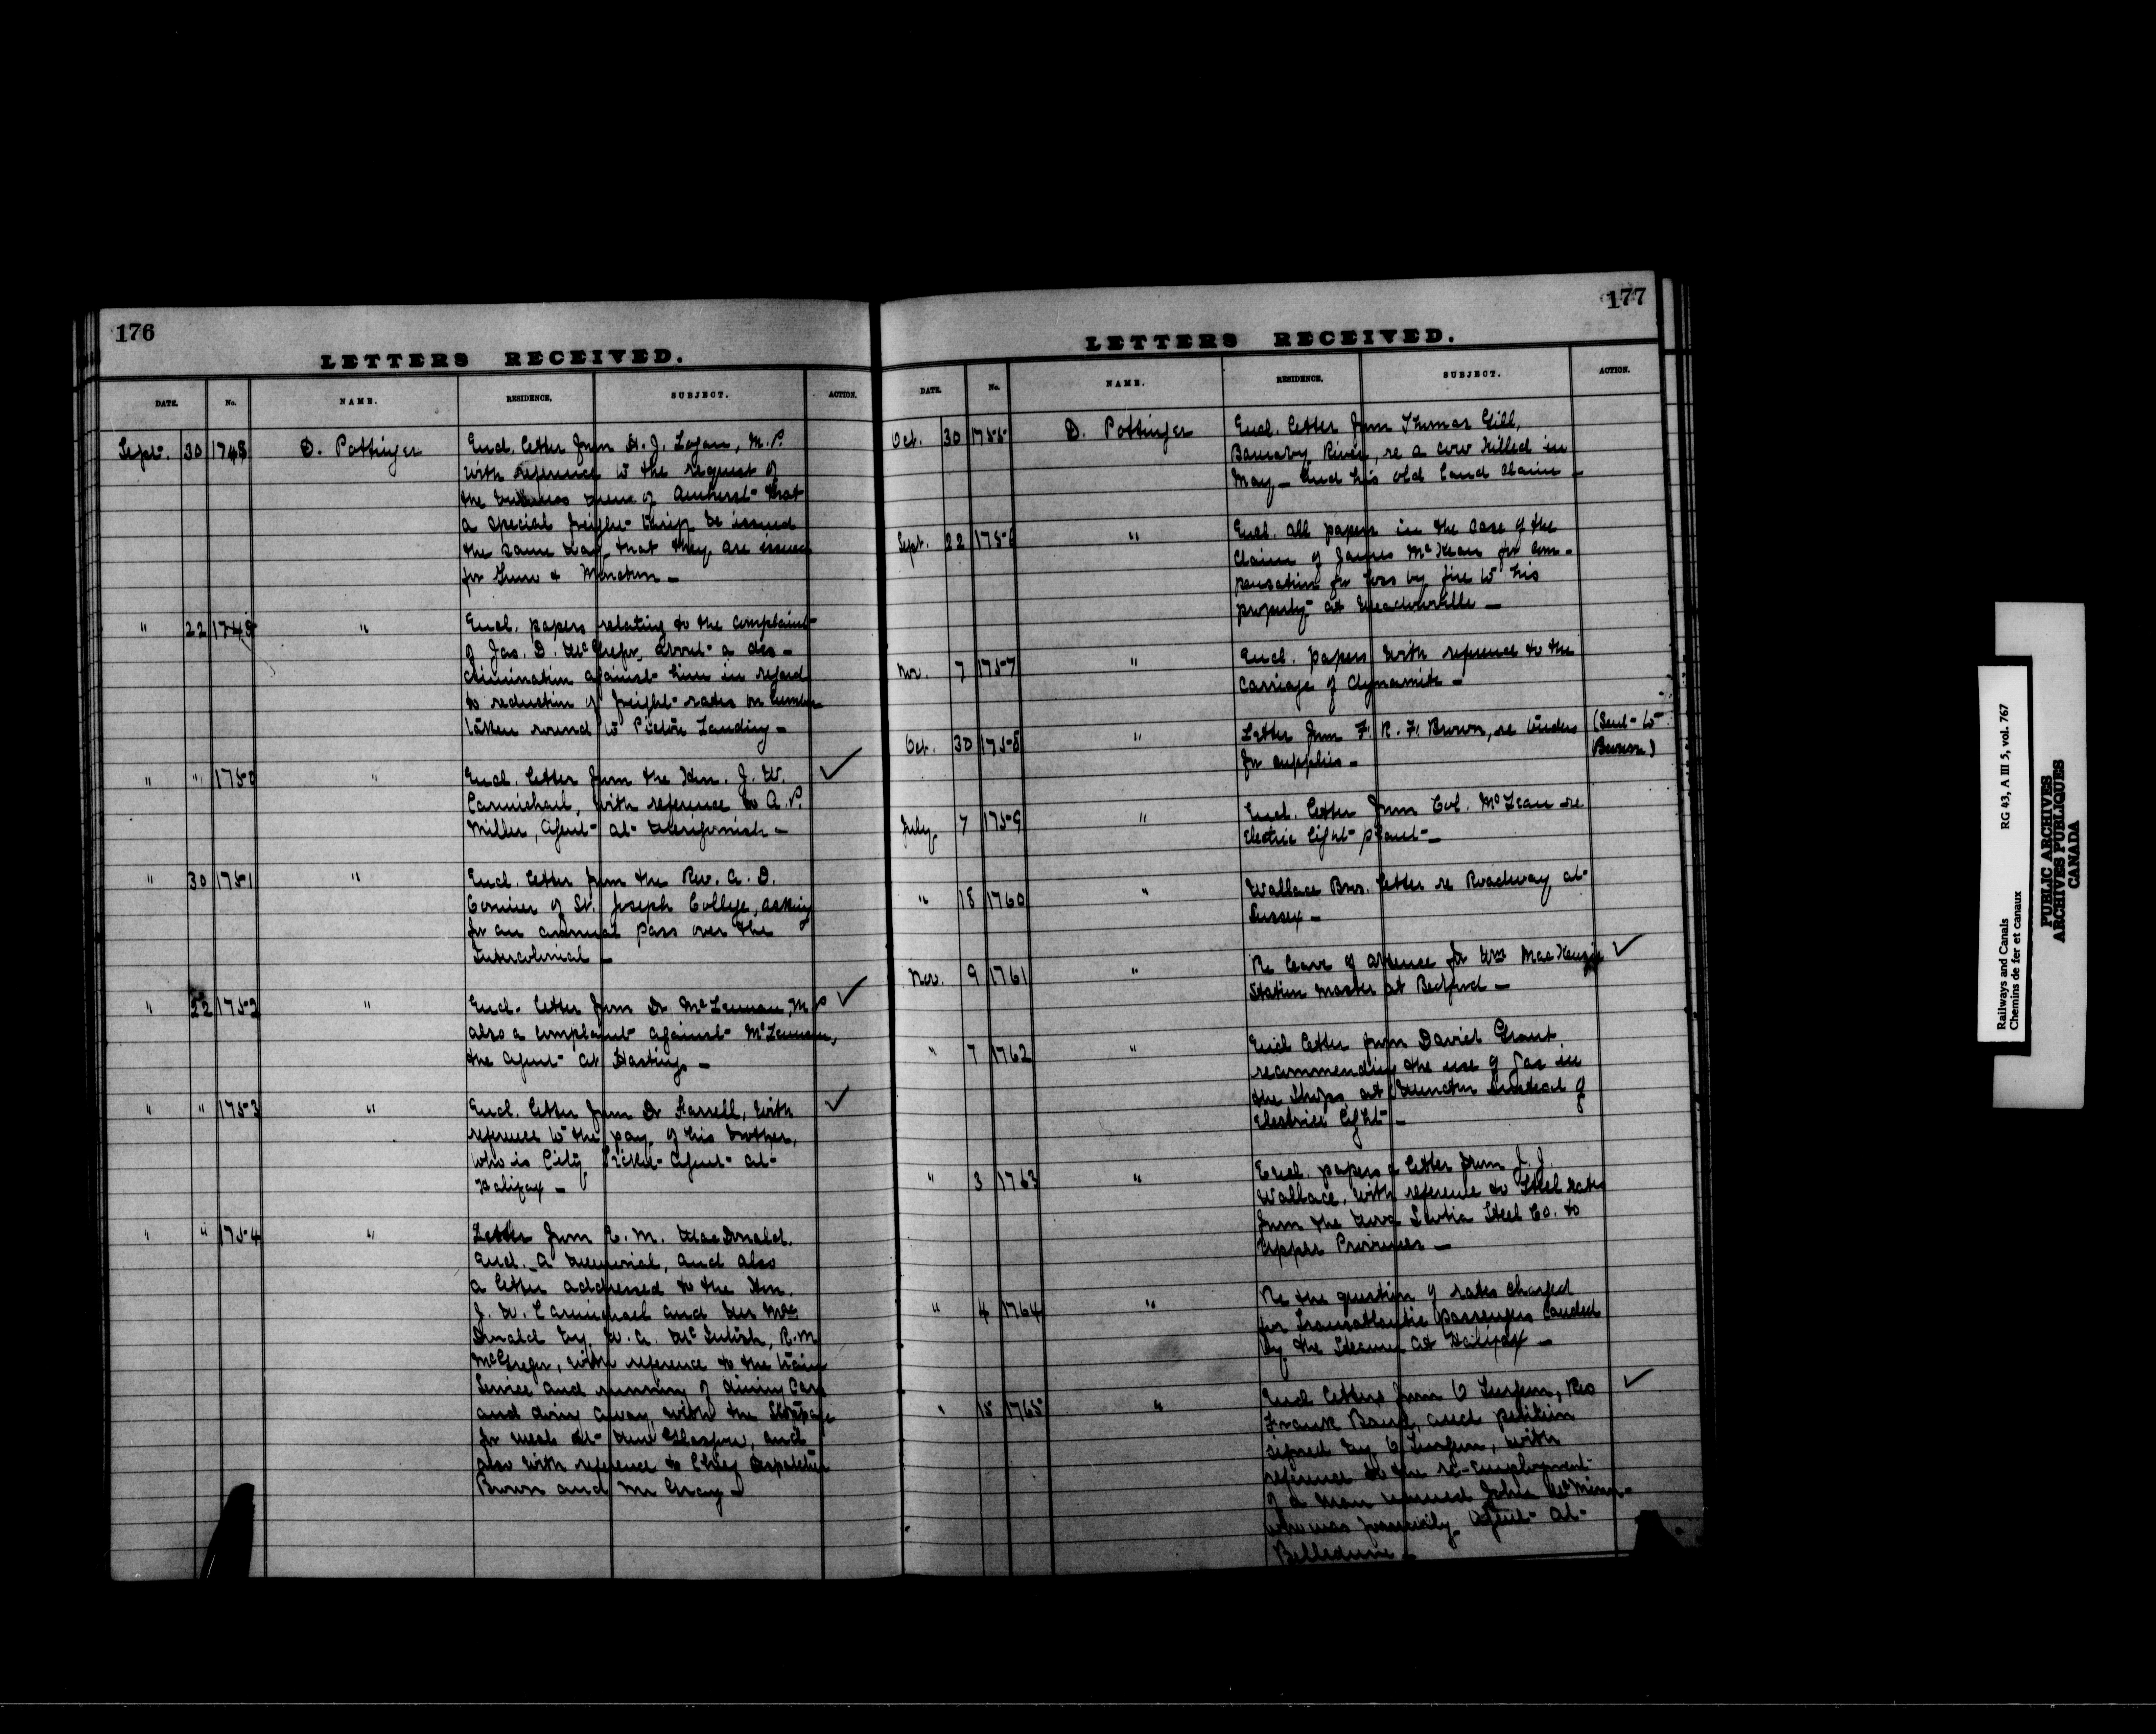 176
LETTERS RECEIVED.
DATE. No. NAME. RESIDENCE, SUBJECT. ACTION,
Sept. 30 1748 D. Pottinger Encl. letter from H. J. Logan, M.P.
with reference to the request of
the business men of Amherst that
a special freight tariff be issued
the same way that they are issued
for Truro & Moncton —
" 22 1749 " Encl. papers relating to the complaint
of Jas. D. McGregor, about a dis-
crimination against him in regard
to reduction of freight rates on lumber
taken round to Pictou Landing —
" " 1750 " Encl. letter from the Hon. J. W. ✓
Carmichael, with reference to A. P.
Miller, Agent at Antigonish —
" 30 1751 " Encl. letter from the Rev. A. D.
Cormier of St. Joseph College, asking
for an annual pass over the
Intercolonial —
" 22 1752 " Encl. letter from Dr McLennan, M.P ✓
also a complaint against McLennan,
the agent at Hastings —
" " 1753 " Encl. letter from Dr Farrell, with ✓
reference to the pay of his brother,
who is City Ticket Agent at
Halifax —
" " 1754 " Letter from E. M. MacDonald.
Encl. a memorial, and also
a letter addressed to the Hon.
J. W. Carmichael and Mr Mac
Donald by W. A. McIntosh, R. M
McGregor, with reference to the train
service and running of dining cars
and doing away with the stoppage
for meals at New Glasgow, and
also with reference to Chief Despatcher
Brown and Mr Gray —
177
LETTERS RECEIVED.
DATE. No. NAME. RESIDENCE, SUBJECT. ACTION.
Oct. 30 1755 D. Pottinger Encl. letter from Thomas Gill,
Barnaby River, re a cow killed in
May — and his old land claim —
Sept. 22 1756 " Encl. all papers in the case of the
claim of James McKean for com-
pensation for loss by fire to his
property at Meadowville —
Nov. 7 1757 " Encl. papers with reference to the
carriage of dynamite —
Oct. 30 1758 " Letter from F. R. F. Brown, re tenders (Sent to
for supplies — Brown)
July 7 1759 " Encl. letter from Col. McLean re
Electric light plant —
" 18 1760 " Wallace Bros. letter re Roadway at
Sussex —
Nov. 9 1761 " Re leave of absence for Wm MacKenzie ✓
Station Master at Bedford —
" 7 1762 " Encl letter from David Grant
recommending the use of gas in
the Shops at Moncton instead of
Electric light —
" 3 1763 " Encl. papers & letter from J. J.
Wallace, with reference to Steel rates
from the Nova Scotia Steel Co. to
Upper Provinces —
" 4 1764 " Re the question of rates charged
for Transatlantic passengers landed
by the Steamers at Halifax —
" 15 1765 " Encl letters from O Turgeon, Rev ✓
Frank and petition
signed by O Turgeon, with
reference to the re-employment
of a man named John McMinn
who was formerly Agent at
Belledune —
Railways and Canals RG 43, A III 5, vol. 767
Chemins de fer et canaux
PUBLIC ARCHIVES
ARCHIVES PUBLIQUES
CANADA